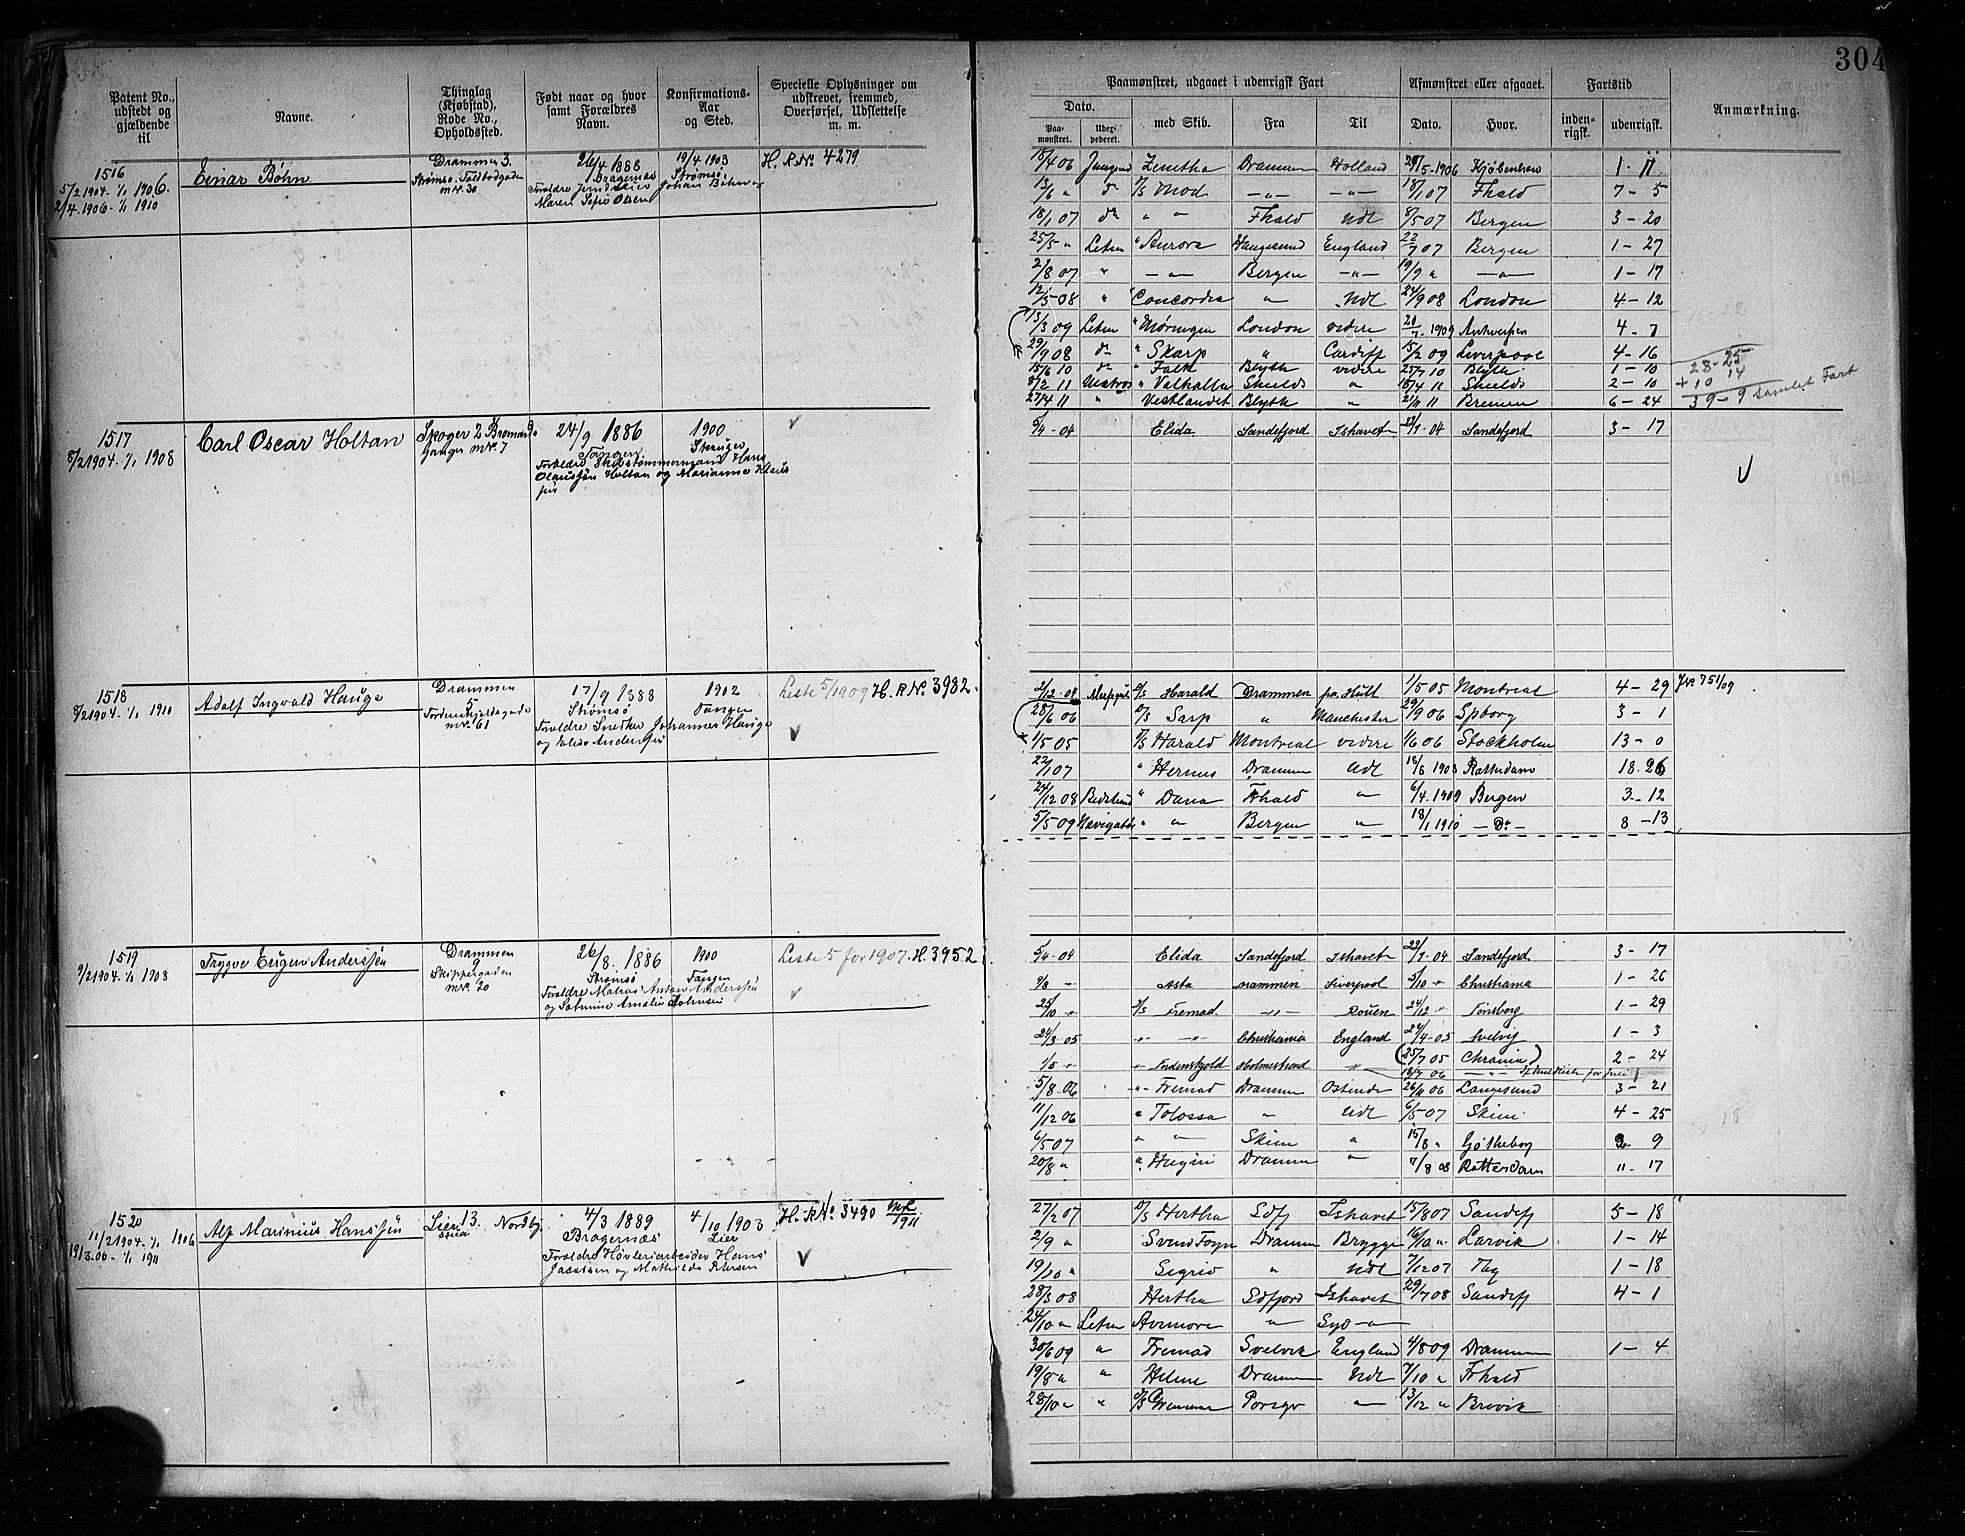 304
Patent No., udstedt og gjældende til
Navne.
Thinglag (Kjøbstad), Rode No., Opholdssted.
Født naar og hvor samt Forældres Navn.
Konfirmations-Aar og Sted.
Specielle Oplysninger om udskrevet, fremmed, Overførsel, Udslettelse m. m.
Paamønstret, udgaaet i udenrigsk Fart
Afmønstret eller afgaaet.
Fartstid
Anmærkning.
Dato.
Paamønstret.
med Skib.
Fra
Til
Dato.
Hvor.
indenrigsk.
udenrigsk.
1516
5/2 1904. 1/1 1906.
2/4. 1906. 1/1 1910
Einar Bøhn
Drammen 3.
Strømsø. Toldbodgaden
m Nr. 30
26/4 1888
Bragernes
Maren Sofie Olsen
19/4 1903
Strømsø
Johan Bøhn og
H. R No 4279
15/4 06 Zenitha Drammen Holland 29/5-1906 Kjøbenhavn 1. 11
13/6 " D/S Mod —"— —"— 18/1 07 Fhald 7 - 5
18/1 07 " " Fhald Udl 8/5 07 Bergen 3 - 20
25/5 " Letm " Aurora Haugesund England 22/7 07 Bergen 1 - 27
2/8 07 " —"— Bergen —"— 19/9 " —"— 1 - 17
12/5-08 " " Concordia " Udl 24/9 08 London 4 - 12
13/3 09 Letm " Møringen London videre 20/7. 1909 Antwerpen 4 - 7
29/9 08 do " Skarp " Cardiff 15/2 09 Liverpool 4 - 16
15/6 10 do " Falk Blyth videre 25/7 10 Blyth 1 - 10
8/2 11 Matros " Valhalla Shields " 18/4 11 Shields 2 - 10
27/4 11 " " Vestlandet Blyth " 21/11 11 Bremen 6 - 24
28 - 25
+ 10 14
39 - 9 samlet Fart
1517
8/2 1904. 1/1 1908
Carl Oscar Holtan
Skoger 2
m Nr. 7
24/9 1886
Tangen
Forældre Skibstømmermand Hans
Olaussen Holtan og Marianne Klaus
sen
1900
Skoger
5/4-04 Elida Sandefjord Ishavet 22/9-04 Sandefjord 3 - 17
1518
8/2 1904. 1/1 1910
Adolf Ingvald Hauge
Drammen
5
Tordenskjoldsgade
m Nr. 61
17/9 1888
Strømsø
Forældre Snedker Johannes Hauge
og Elise Andersen
1902
Tangen
Liste 5/1909 H. R No. 3982.
2/12-04 D/S Harald Drammen pr. Hull 1/5 05 Montreal 4 - 29 Jr. 751/09
28/6 06 D/S Sarp " Manchester 29/9 06 Spborg 3 - 1
1/5 05 D/S Harald Montreal videre 1/6 06 Stockholm 13 - 0
22/1 07 " Hermes Drammen Udl 18/8 1908 Rotterdam 18. 26
24/12 08 " Dana Fhald " 6/4. 1909 Bergen 3 - 12
5/5 09 Navigatør " " Bergen " 18/1 1910 — Do — 8 - 13
1519
9/2 1904. 1/1 1908
Trygve Eugen Anderssen
Drammen
9
Skippergaden
m Nr. 20
26/8. 1886
Strømsø
Forældre Matros Anton Anderssen
og Amalie Johnsen
1900
Tangen
Liste 5 for 1907. H. 3952
5/4-04 Elida Sandefjord Ishavet 22/9-04 Sandefjord 3 - 17
9/8 - Asta Drammen Liverpool 5/10 " Christiania 1 - 26
25/10 " D/S Fremad —"— Rouen 24/12 " Tønsberg 1 - 29
24/3-05 " —"— Christiania England 27/4-05 Svelvig 1 - 3
1/5 " " Indenskjold Holmestrand " (25/7 05 Chrania) 2 - 24
18/7 06 —"—
5/8.06 " Fremad Drammen Ostende 26/11 06 Langesund 3 - 21
11/12 06 " Tolossa " Udl 6/5 07 Skien 4 - 25
6/5 07 " " Skien " 15/8 " Gøtheborg 9
20/8 " " Hugin Drammen " 7/8 08 Rotterdam 11 - 17
1520
11/2 1904. 1/1 1906
19/3.06 - 1/1 1911
Alf Marinius Hanssen
Lier 13. Nordby
4/3 1889
Bragernæs
Forældre Høvleriarbeider Hans
Jacobsen og Mathilde Petersen
4/10 1903
Lier
H. R No. 3490
1911
27/2 07 D/S Hertha Sdfj Ishavet 15/8 07 Sandefj 5 - 18
2/9 " Svend Foyn Drammen Brygge 16/10 " Larvik 1 - 14
19/10 " Sigrid " Udl 7/12 07 Tbg 1 - 18
28/3 08 Hertha Sdfjord Ishavet 29/7 08 Sandefj 4 - 1
24/10 " Letm Avimore " Syd —"—
30/6 09 " Fremad Svelvik England 4/8 09 Drammen 1 - 4
19/8 " " Helene Drammen Udl 7/10 " Frhald
28/10 " " Porsgr " 13/12 " Brevik